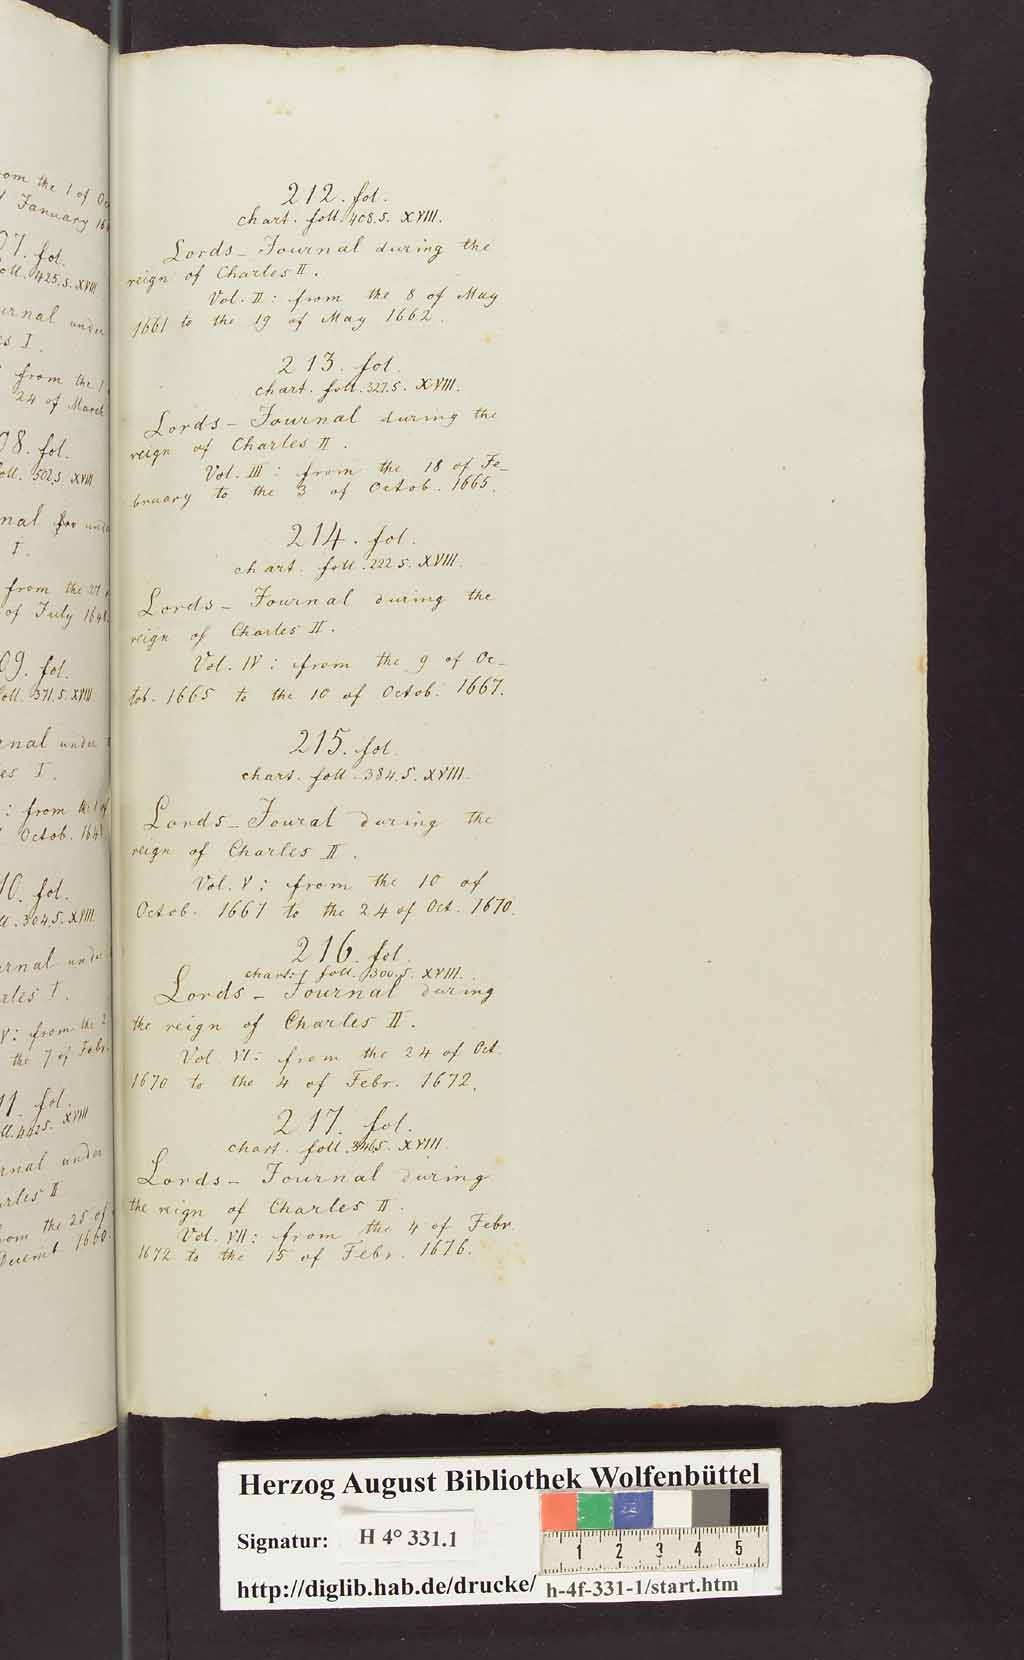 om the 1 of Oc
January 16
07. fol.
oll. 425. s. XVIII
urnal under
es I.
from the 1
24 of March
08. fol.
oll. 502. s. XVIII
nal for unde
I.
from the 27
of July 164
09. fol.
oll. 371. s. XVIII
nal under
es I.
: from the 1 of
Octob. 164
10. fol.
ll. 304. s. XVIII.
rnal under
rles I.
V: from the 2
the 7 of Febr.
11. fol.
ll. 442 s. XVIII
rnal under
rles II
om the 25 of
Decemb 1660.
212. fol.
chart. foll. 408. s. XVIII.
Lords-Journal during the
reign of Charles II.
Vol. II: from the 8 of May
1661 to the 19 of May 1662.
213. fol.
chart. foll. 327. s. XVIII.
Lords-Journal during the
reign of Charles II.
Vol. III: from the 18 of Fe-
bruary to the 3 of Octob. 1665.
214. fol.
chart. foll. 222 s. XVIII.
Lords-Journal during the
reign of Charles II.
Vol. IV: from the 9 of Oc-
tob. 1665 to the 10 of Octob. 1667.
215. fol.
chart. foll. 384. s. XVIII.
Lords-Joural during the
reign of Charles II.
Vol. V: from the 10 of
Octob. 1667 to the 24 of Oct. 1670.
216. fol.
chart. foll. 300. s. XVIII.
Lords-Journal during
the reign of Charles II.
Vol. VI: from the 24 of Oct.
1670 to the 4 of Febr. 1672.
217. fol.
chart. foll. 346 s. XVIII.
Lords-Journal during
the reign of Charles II.
Vol. VII: from the 4 of Febr.
1672 to the 15 of Febr. 1676.
Herzog August Bibliothek Wolfenbüttel
Signatur: H 4° 331.1
1 2 3 4 5
http://diglib.hab.de/drucke/ h-4f-331-1/start.htm